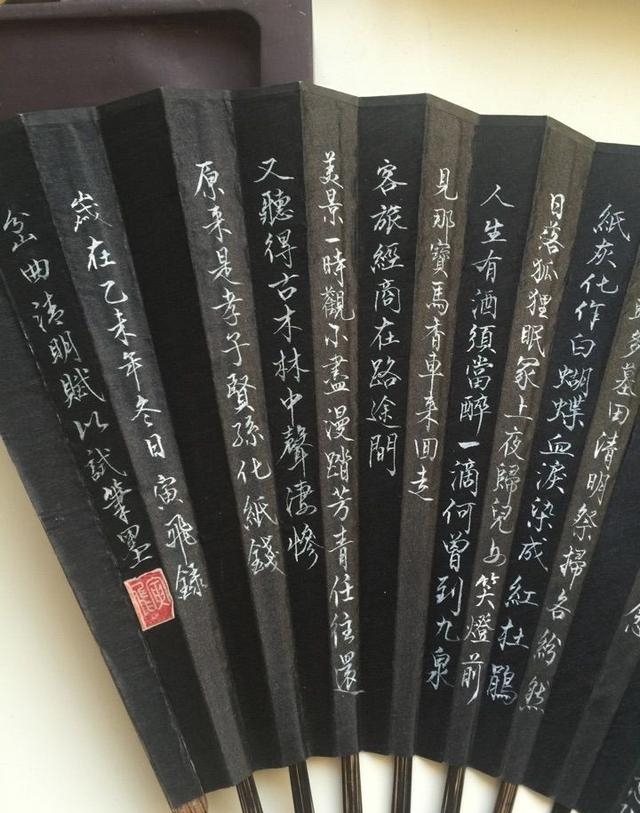 多墓田清明祭掃各紛然
紙灰化作白蝴蝶血淚染成紅杜鵑
日落狐狸眠冢上夜歸兒女笑燈前
人生有酒須當醉一滴何曾到九泉
見那寶馬香車来回走
客旅經商在路途間
美景一時觀不盡漫踏芳青任往還
又聽得古木林中聲淒慘
原来是孝子賢孫化紙錢
歲在乙未年冬日寅飛錄
岔曲清明賦以試筆墨